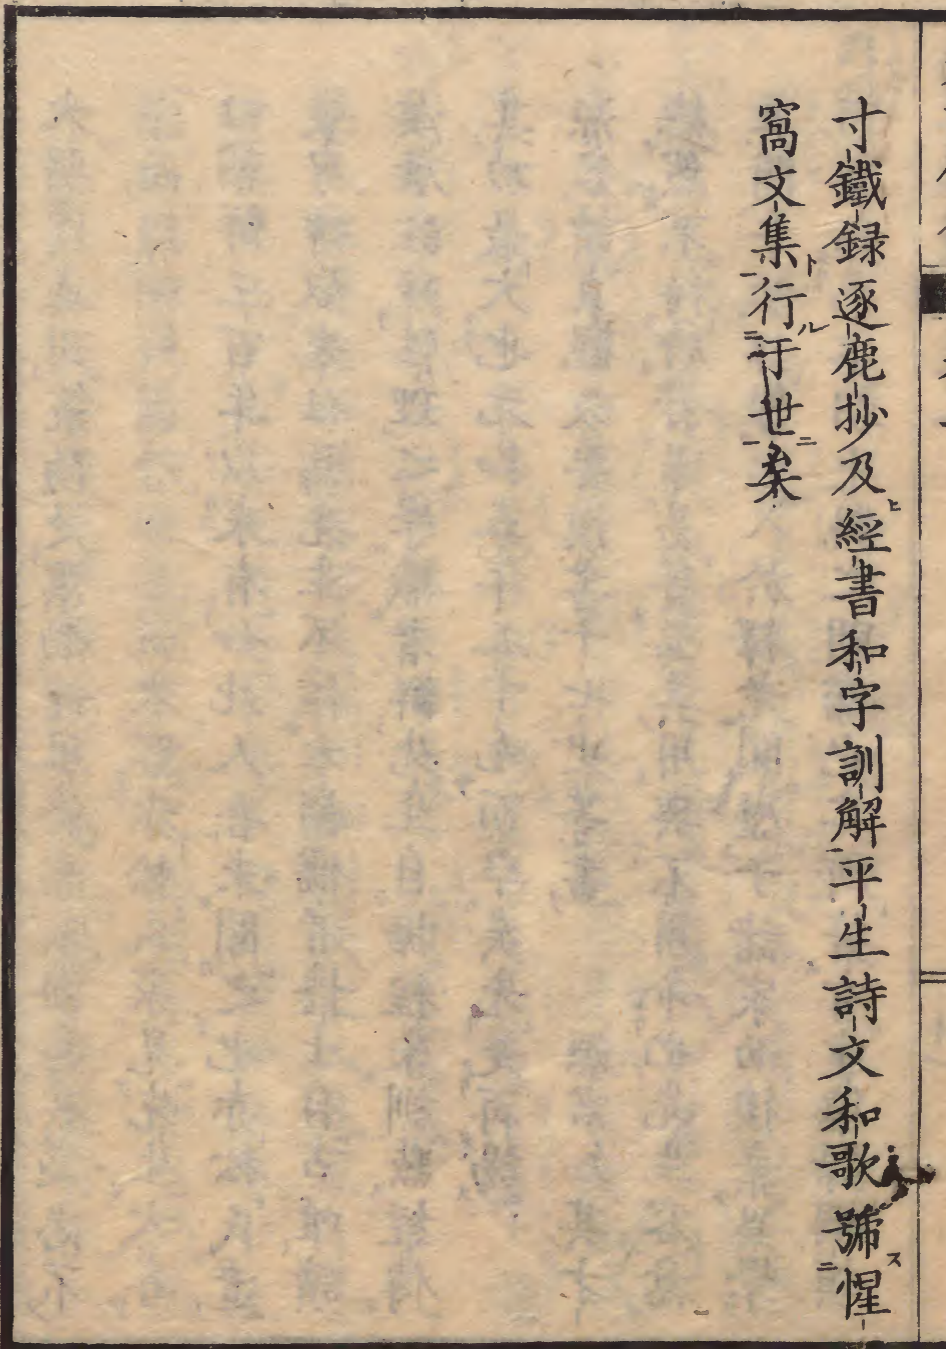 寸鐵録逐鹿抄及ヒ經書和字訓解平生詩文和歌號ス惺
窩文集ト行ル于世ニ矣